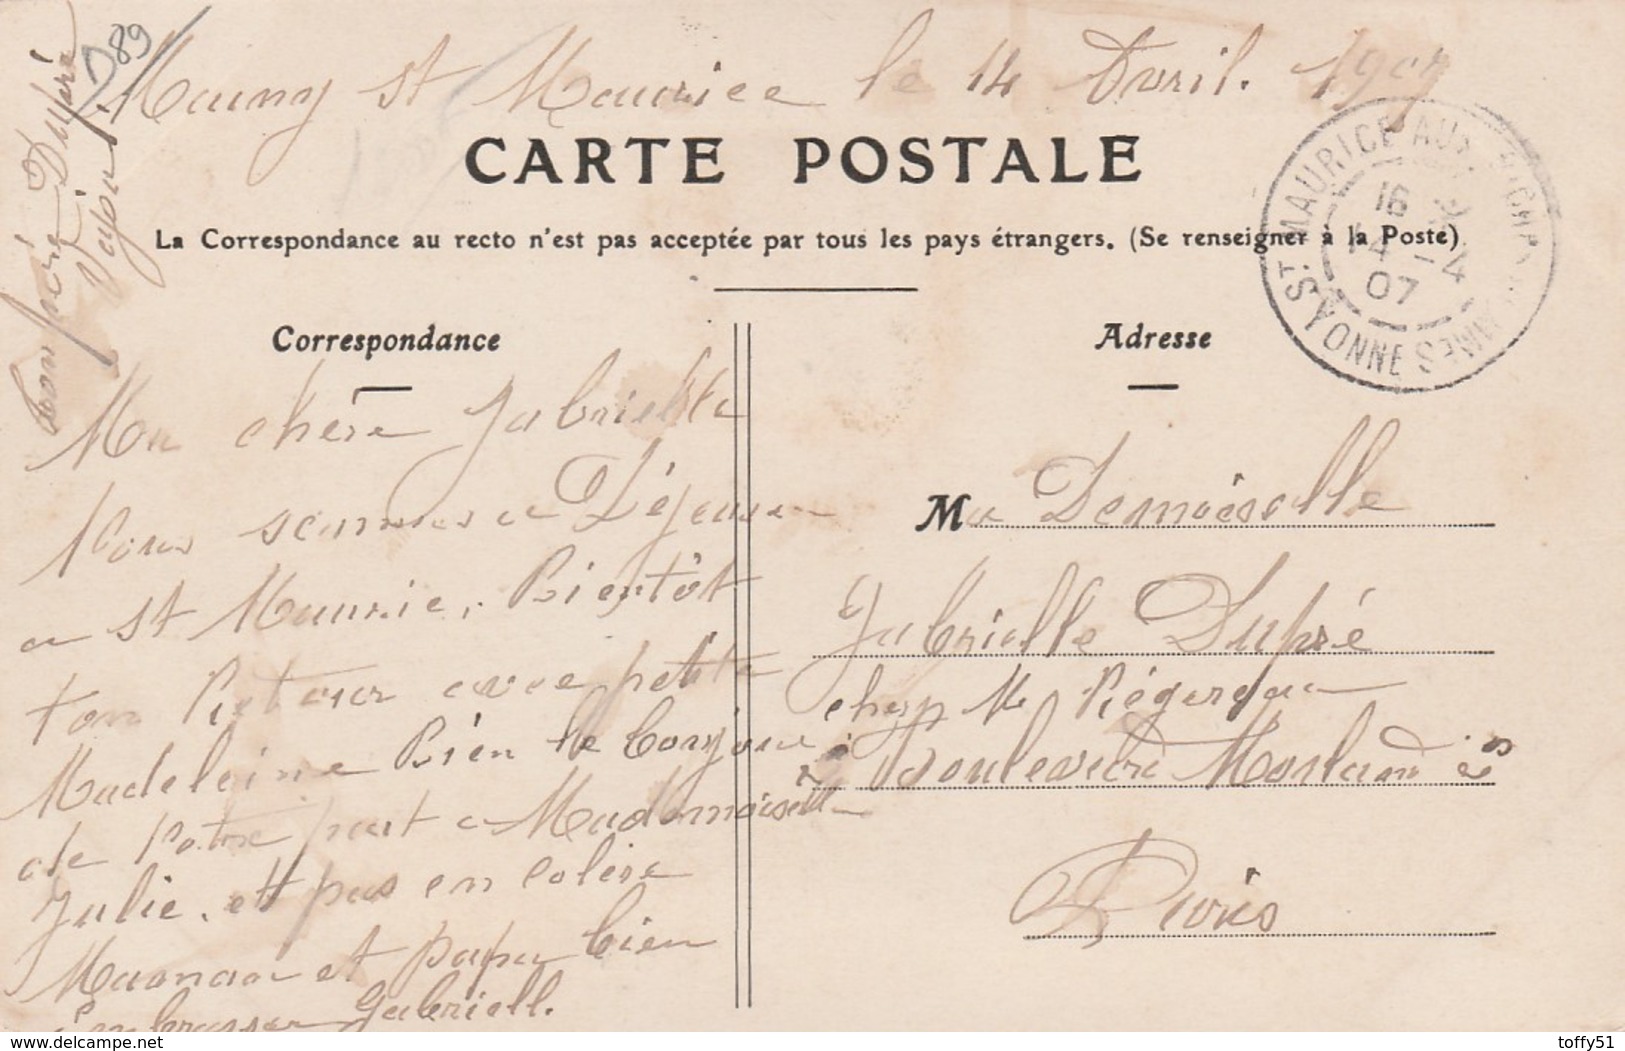 D89
Mauny St Maurice le 14 Avril. 1907
CARTE POSTALE
La Correspondance au recto n'est pas acceptée par tous les pays étrangers. (Se renseigner à la Poste)
ST MAURICE AUX RICHES HOMMES
16
14 - 4
07
YONNE
Correspondance
Ma chère Gabrielle
Nous sommes a Déjeuner
a St Maurice, Bientôt
ton Retour avec petite
Madeleine Bien le bonjour
de Votre part a Mademoiselle
Julie. et pas en colère
Maman et papa bien
embrasser Gabriell.
ton frère Dupré
Adresse
Ma Demoiselle
Gabrielle Dupré
chez M
Boulevard Morland
Paris
delcampe.net
toffy51